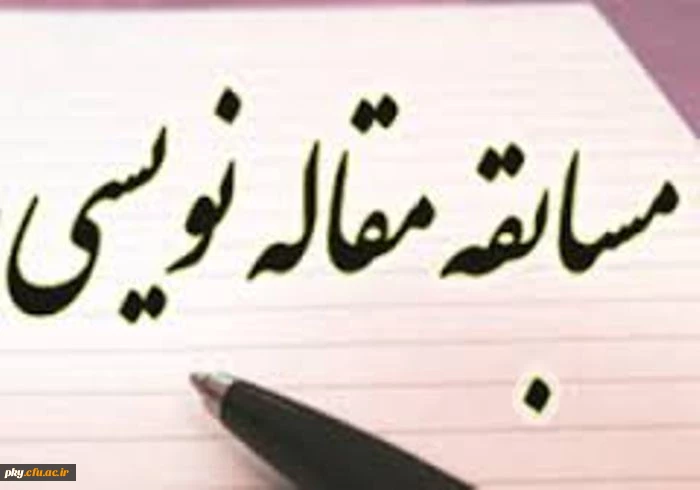 مسابقه مقاله نویسی
pky.cfu.ac.ir